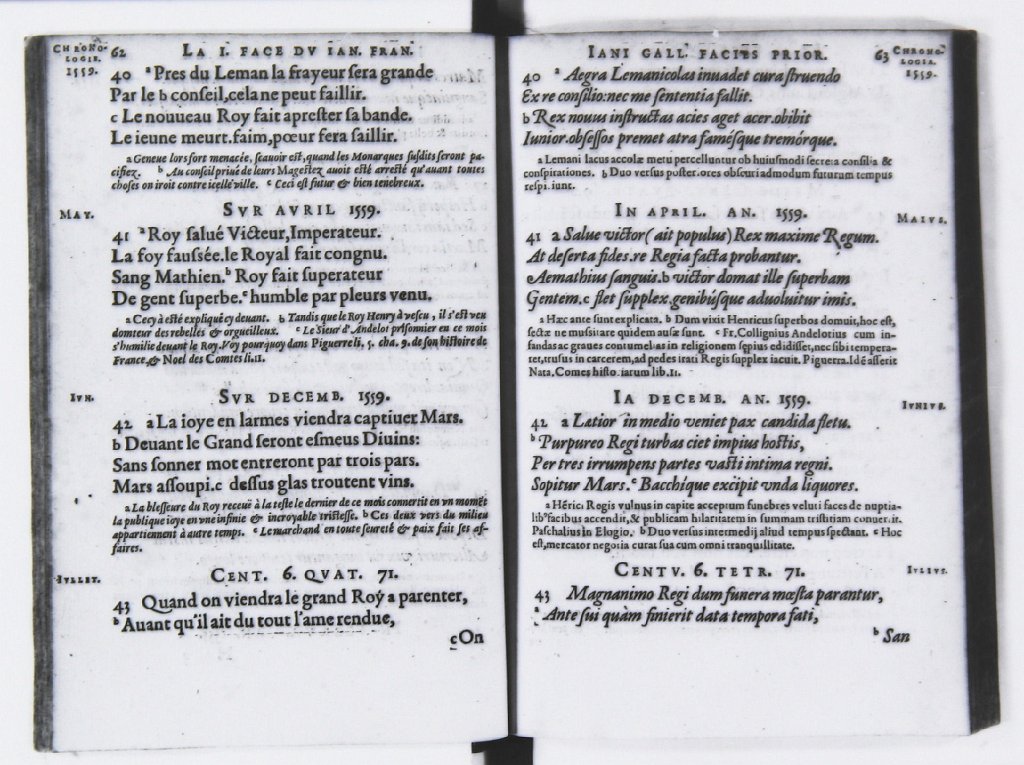 CHRONO-
LOGIE.
1559.
62 LA I. FACE DV IAN. FRAN.
40 ᵃ Pres du Leman la frayeur sera grande
Par le b conseil, cela ne peut faillir.
c Le nouueau Roy fait aprester sa bande.
Le ieune meurt.faim, pœur fera faillir.
a Geneue lors fort menacée, scauoir est, quand les Monarques susdits seront pa-
cifiez. ᵇ Au conseil priué de leurs Magestez auoit esté arresté qu'auant toutes
choses on iroit contre icelle ville. ᶜ Ceci est futur & bien tenebreux.
MAY.
SVR AVRIL 1559.
41 ᵃ Roy salué Victeur, Imperateur.
La foy faussée.le Royal fait congnu.
Sang Mathien.ᵇ Roy fait superateur
De gent superbe.ᶜ humble par pleurs venu.
a Cecy à esté expliqué cy deuant. b Tandis que le Roy Henry à vescu, il s'est veu
domteur des rebelles & orgueilleux. ᶜ Le Sieur d'Andelot prisonnier en ce mois
s'humilie deuant le Roy.Voy pourquoy dans Piguerre li. 5. cha. 9. de son histoire de
France, & Noel des Comtes li.11.
IVN.
SVR DECEMB. 1559.
42 a La ioye en larmes viendra captiuer Mars.
b Deuant le Grand seront esmeus Diuins:
Sans sonner mot entreront par trois pars.
Mars assoupi.c dessus glas troutent vins.
a La blesseure du Roy receuë à la teste le dernier de ce mois conuertit en vn momēt
la publique ioye en vne infinie & incroyable tristesse. ᵇ Ces deux vers du milieu
appartiennent à autre temps. ᶜ Le marchand en toute seureté & paix fait ses af-
faires.
IVLLET.
CENT. 6. QVAT. 71.
43 Quand on viendra le grand Roy a parenter,
ᵇ Auant qu'il ait du tout l'ame rendue,
cOn
IANI GALL. FACIES PRIOR. 63
CHRONO-
LOGIA.
1559.
40 ᵃ Aegra Lemanicolas inuadet cura struendo
Ex re consilio:nec me sententia fallit.
b Rex nouus instructas acies aget acer.obibit
Iunior.obsessos premet atra famésque tremórque.
a Lemani lacus accolæ metu percelluntur ob huiusmodi secreta consilia &
conspirationes. b Duo versus posteriores obscuri admodum futurum tempus
respiciunt.
MAIVS.
IN APRIL. AN. 1559.
41 a Salue victor ( ait populus) Rex maxime Regum.
At deserta fides.re Regia facta probantur.
Aemathius sanguis.b victor domat ille superbam
Gentem.c flet supplex.genibúsque aduoluitur imis.
a Hæc ante sunt explicata. b Dum vixit Henricus superbos domuit, hoc est,
sectæ ne mussitare quidem ausæ sunt. ᶜ Fr. Collignius Andelotius cum in-
fandas ac graues contumelias in religionem sepius edidisset, nec sibi tempera-
ret, trusus in carcerem, ad pedes irati Regis supplex iacuit. Piguerra. Idē asserit
Nata. Comes histo iarum lib. 11.
IVNIVS.
IA DECEMB. AN. 1559.
42 a Latior in medio veniet pax candida fletu.
ᵇ Purpureo Regi turbas ciet impius hostis,
Per tres irrumpens partes vasti intima regni.
Sopitur Mars. ᶜ Bacchíque excipit vnda liquores.
a Hērici Regis vulnus in capite acceptum funebres veluti faces de nuptia-
libᵘ facibus accendit, & publicam hilaritatem in summam tristitiam conuertit.
Paschalius in Elogio, ᵇ Duo versus intermedij aliud tempus spectant. ᶜ Hoc
est, mercator negotia curat sua cum omni tranquillitate.
IVLIVS.
CENTV. 6. TETR. 71.
43 Magnanimo Regi dum funera mœsta parantur,
ᵃ Ante sui quàm finierit data tempora fati,
ᵇ San